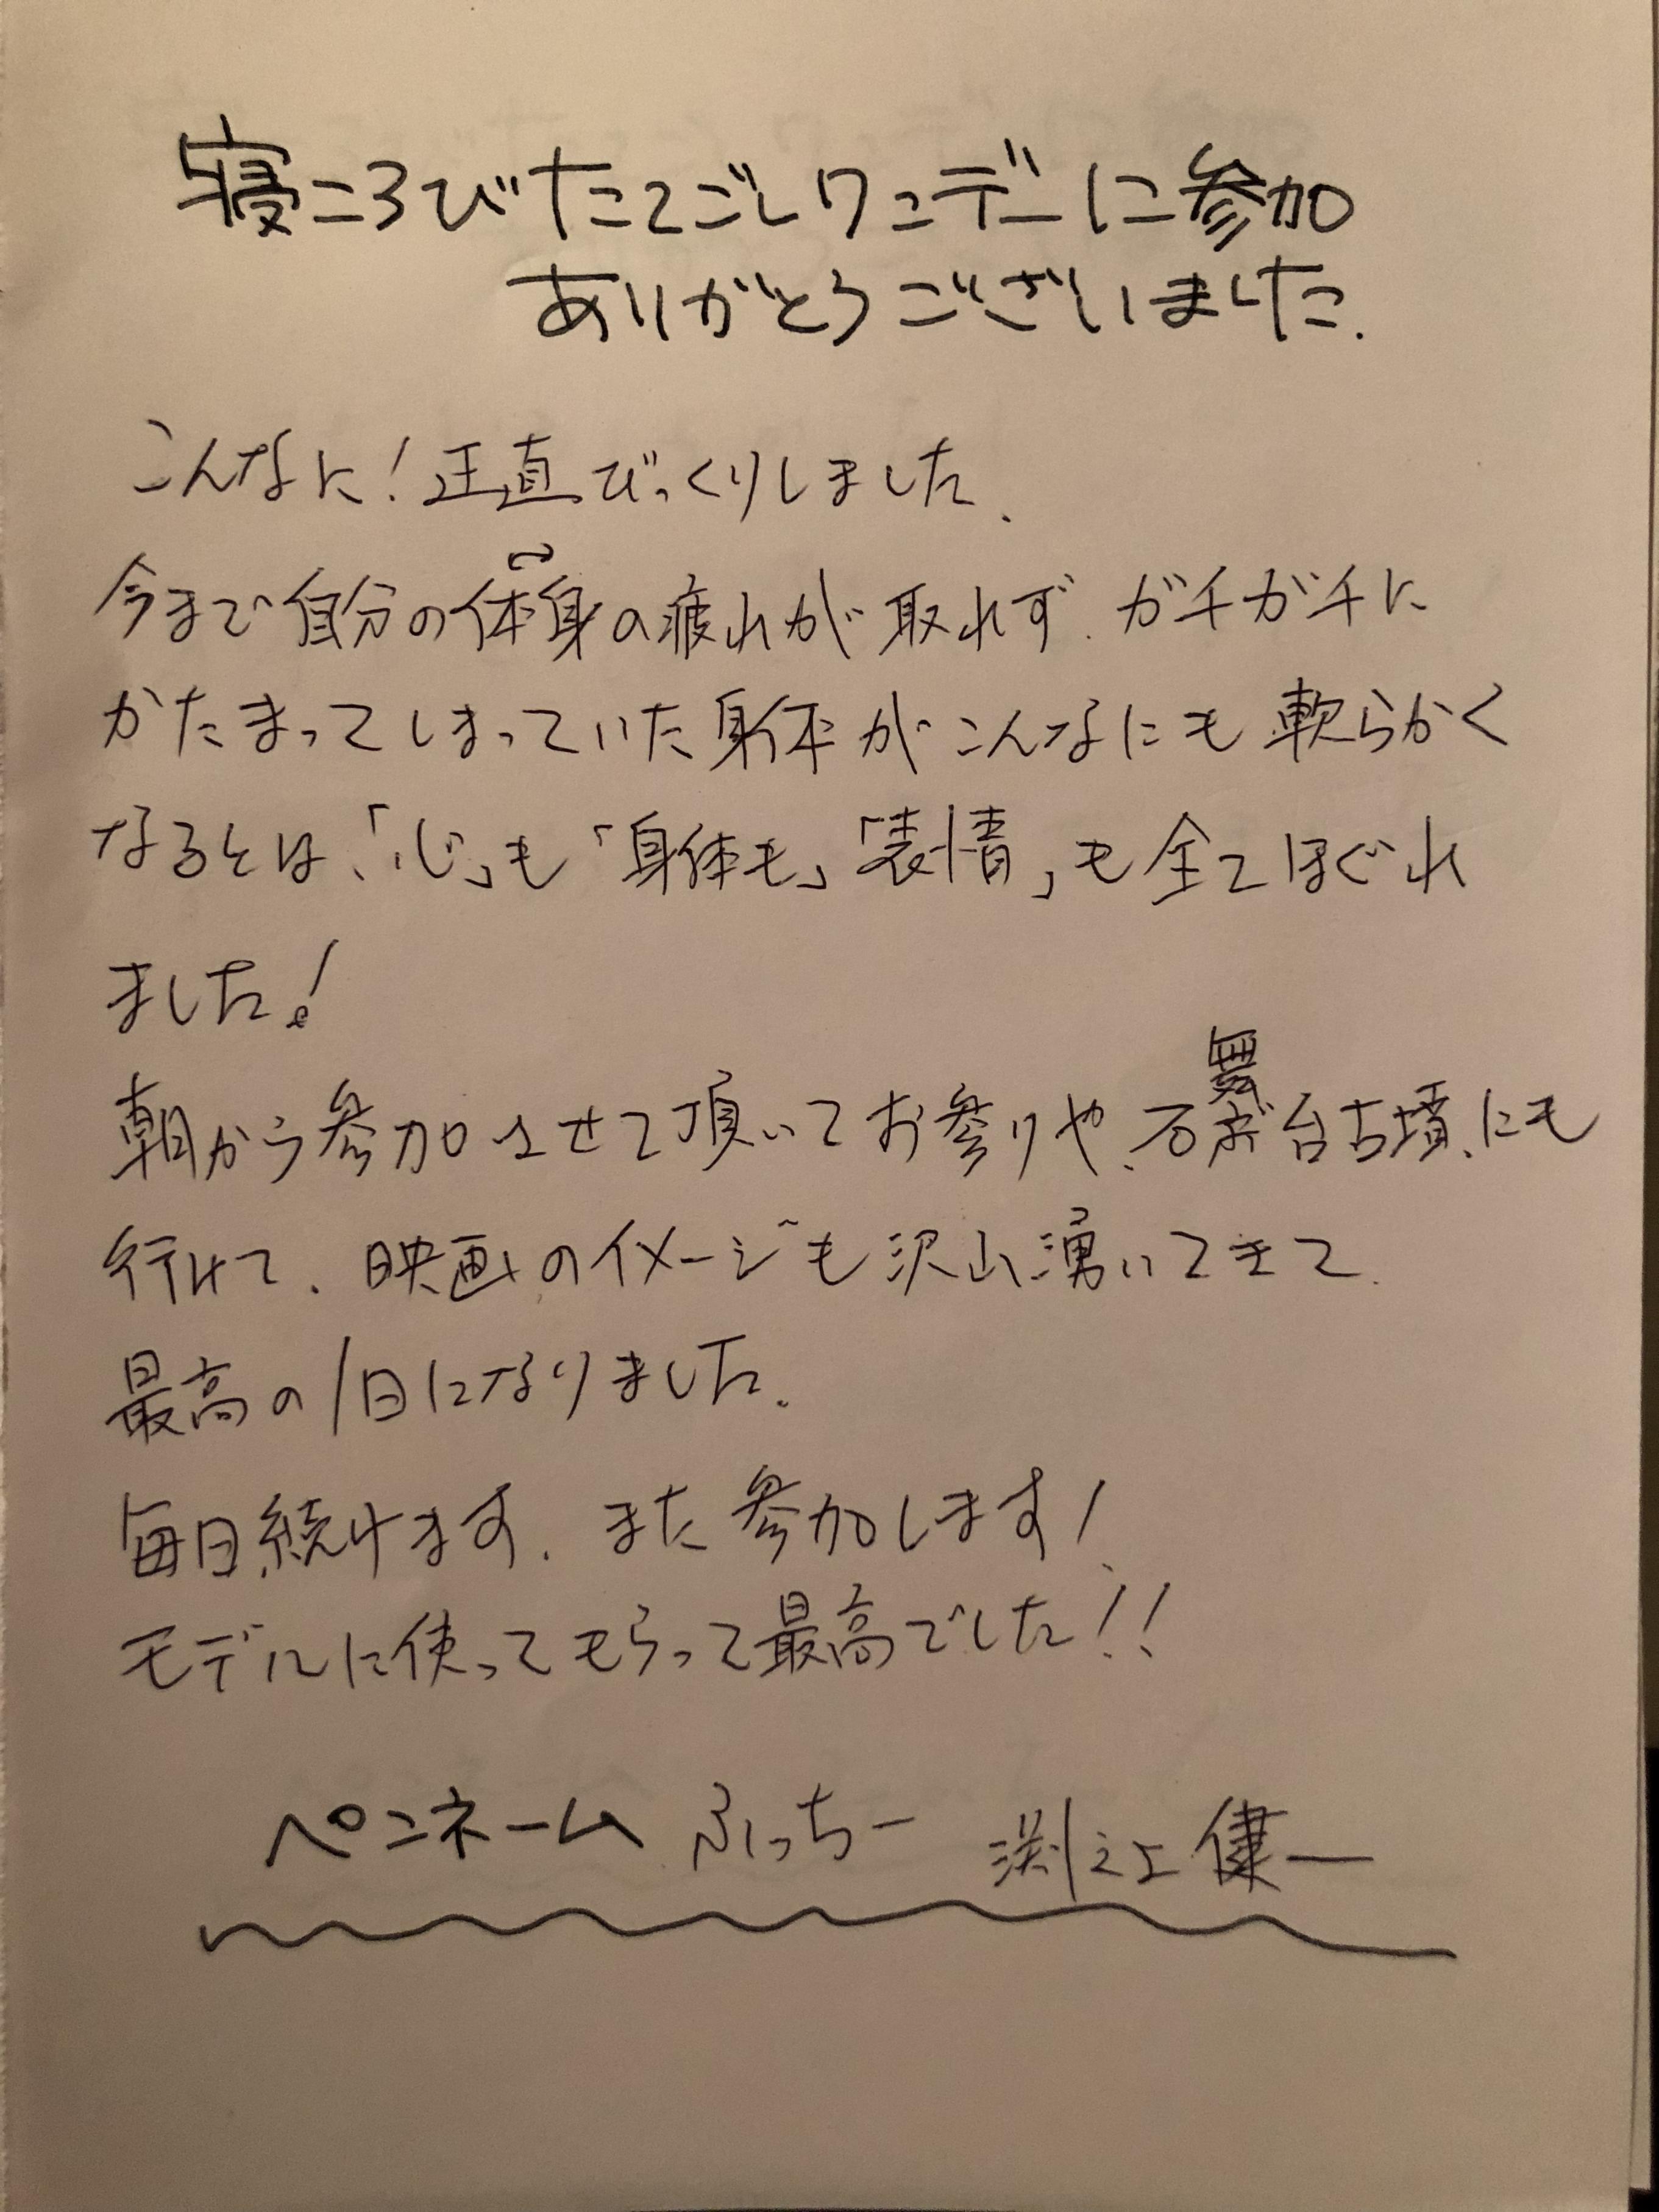 寝ころびたてごしワンデーに参加
ありがとうございました.
こんなに!正直びっくりしました.
今まで自分の体身の疲れが取れず.ガチガチに
かたまってしまっていた身体がこんなにも軟らかく
なるとは、「心」も「身体も」「表情」も全てほぐれ
ました!
朝から参加させて頂いてお参りや、石舞台古墳、にも
行けて、映画のイメージも沢山湧いてきて.
最高の1日になりました.
毎日続けます.また参加します!
モデルに使ってもらって最高でした!!
ペンネーム ふっちー 渕之上 健一